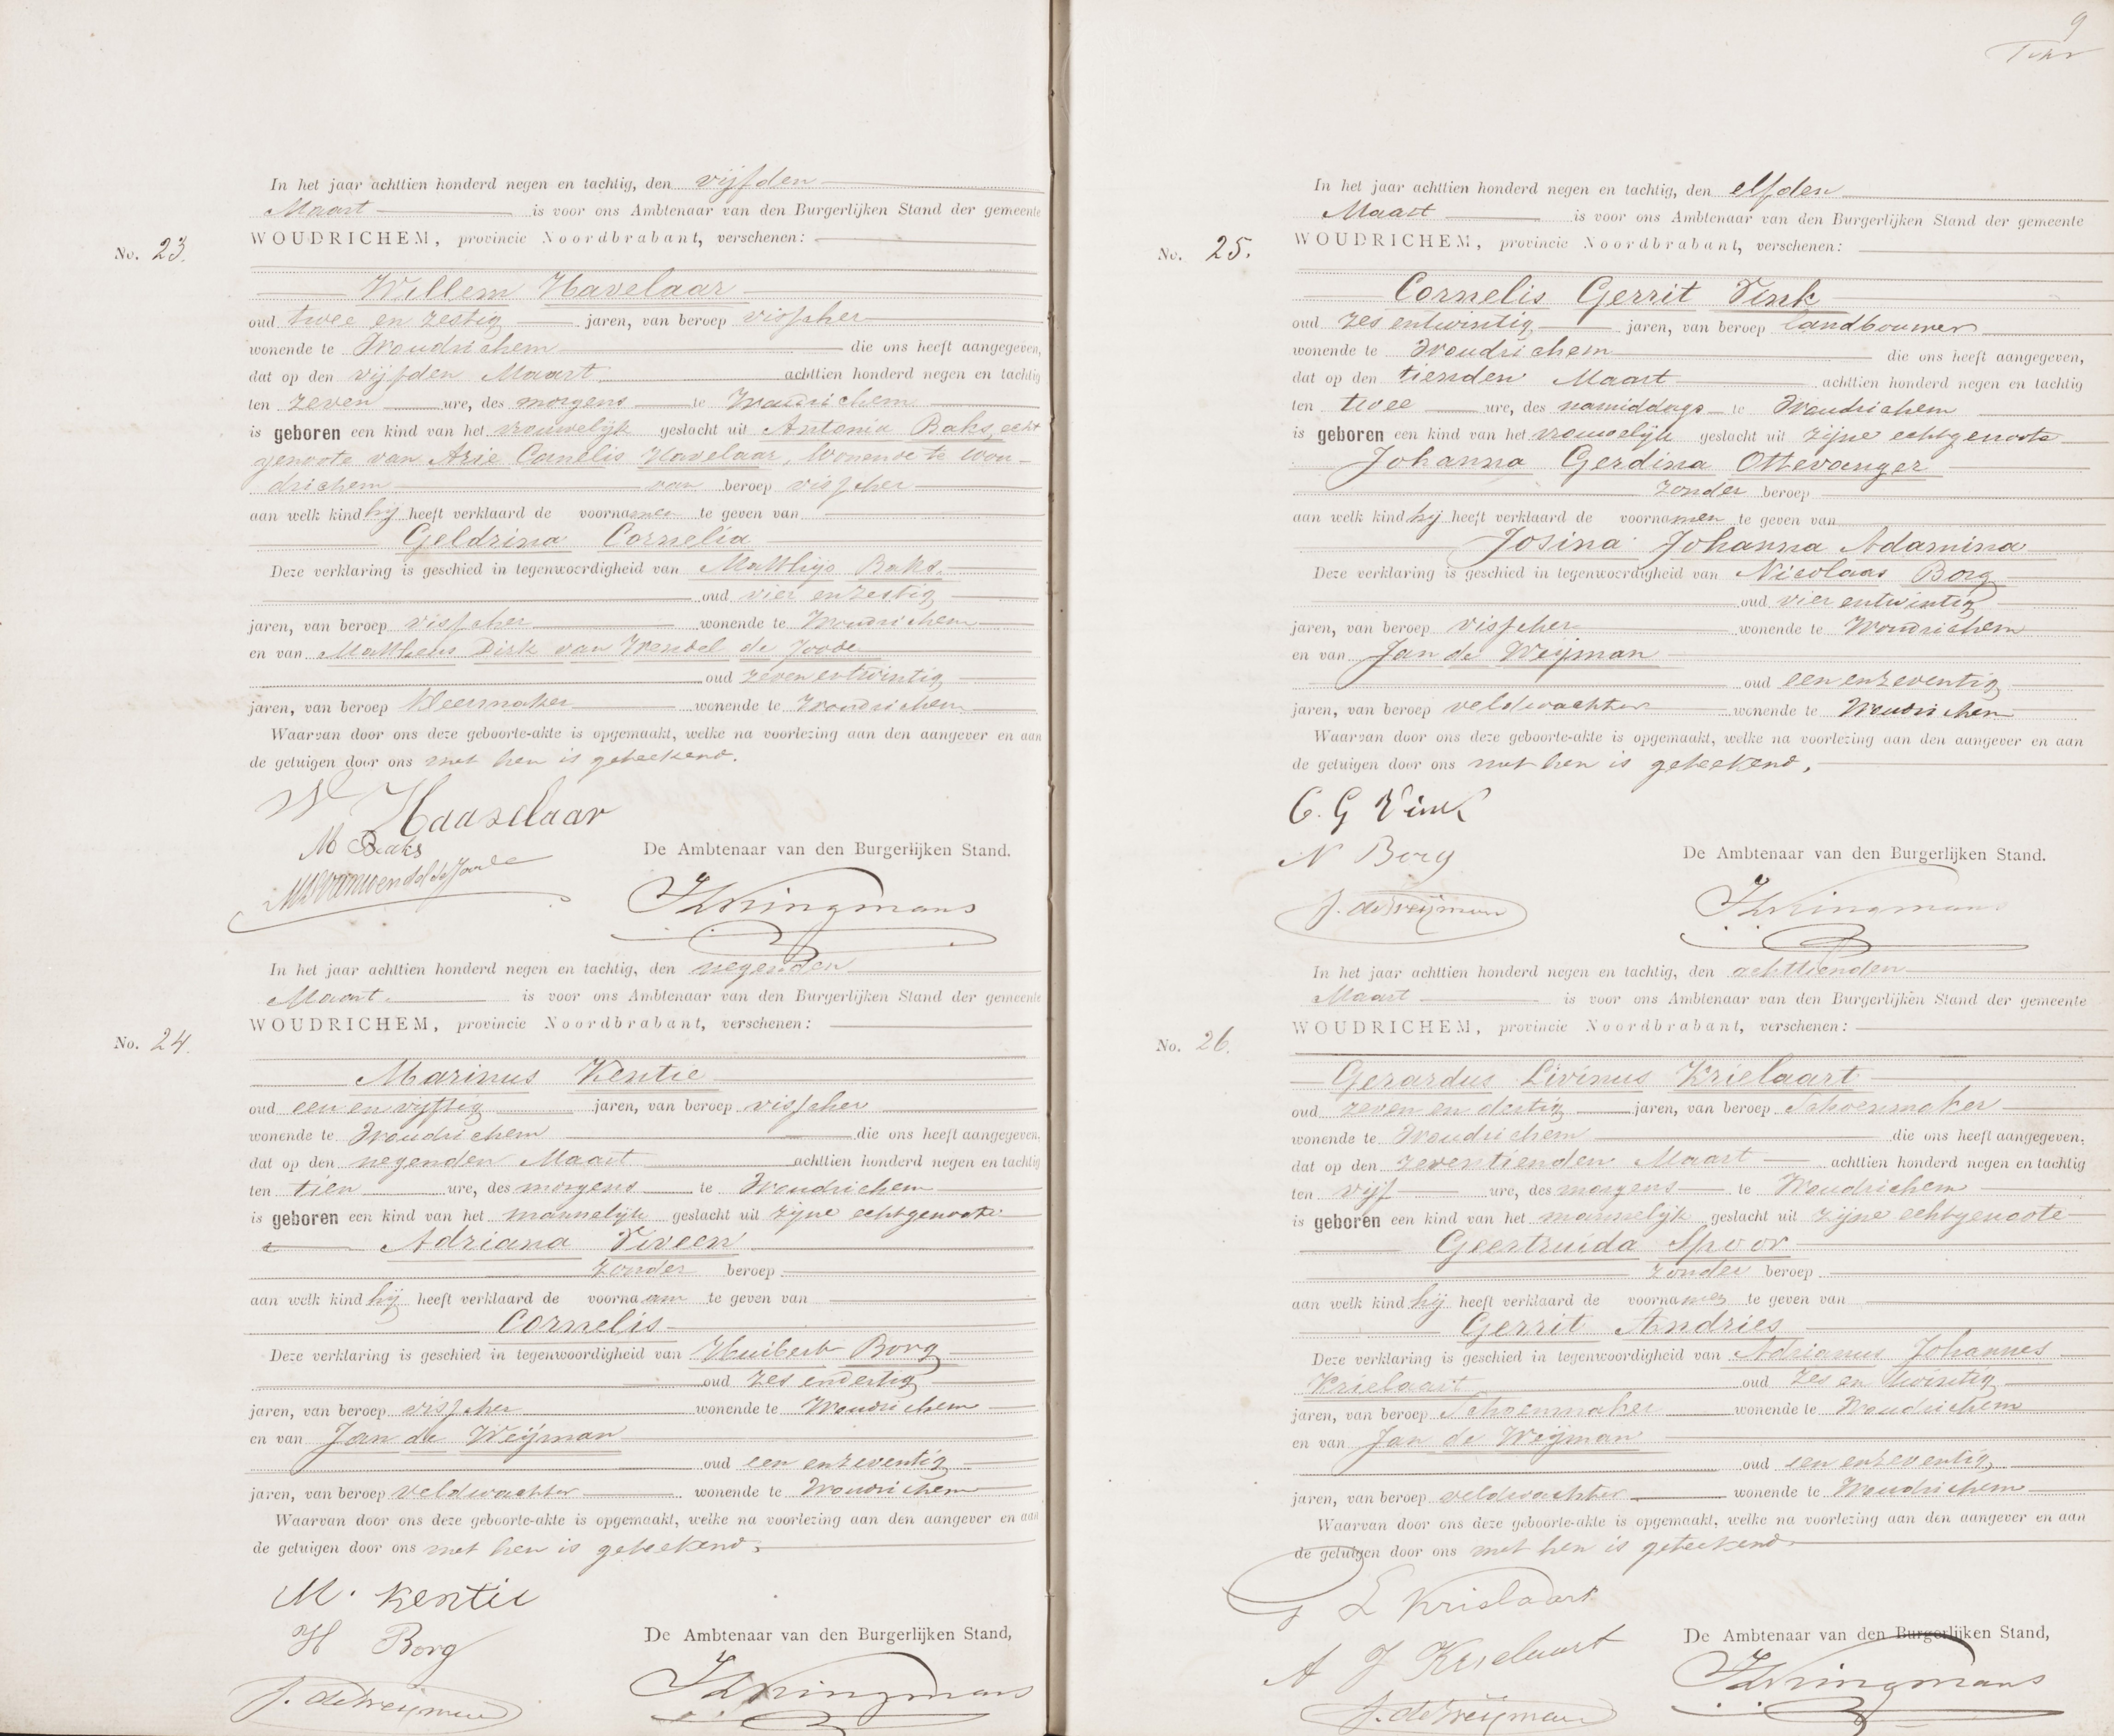 In het jaar achttien honderd negen en tachtig, den vijfden
Maart is voor ons Ambtenaar van den Burgerlijken Stand der gemeente
WOUDRICHEM, provincie Noordbrabant, verschenen:
No. 23.
Willem Havelaar
oud twee en zestig jaren, van beroep visscher
wonende te Woudrichem die ons heeft aangegeven,
dat op den vijfden Maart achttien honderd negen en tachtig
ten zeven ure, des morgens te Woudrichem
is geboren een kind van het vrouwelijk geslacht uit Antonia Baks, echt
genoote van Arie Cornelis Havelaar, wonende te Wou-
drichem van beroep visscher
aan welk kind hij heeft verklaard de voornamen te geven van
Geldrina Cornelia
Deze verklaring is geschied in tegenwoordigheid van Matthijs Baks.
oud vier en zestig
jaren, van beroep visscher wonende te Woudrichem
en van Mattheus Dirk van Wendel de Joode
oud zeven entwintig
jaren, van beroep kleermaker wonende te Woudrichem
Waarvan door ons deze geboorte-akte is opgemaakt, welke na voorlezing aan den aangever en aan
de getuigen door ons met hen is geteekend.
W Haavelaar
M Baks
De Ambtenaar van den Burgerlijken Stand.
In het jaar achttien honderd negen en tachtig, den negenden
Maart. is voor ons Ambtenaar van den Burgerlijken Stand der gemeente
WOUDRICHEM, provincie Noordbrabant, verschenen:
No. 24.
Marinus Kentie
oud een en vijftig jaren, van beroep visscher
wonende te Woudrichem die ons heeft aangegeven,
dat op den negenden Maart achttien honderd negen en tachtig
ten tien ure, des morgens te Woudrichem
is geboren een kind van het mannelijk geslacht uit zijne echtgenoote
Adriana Viveen
zonder beroep
aan welk kind hij heeft verklaard de voornaam te geven van
Cornelis
Deze verklaring is geschied in tegenwoordigheid van Huibert Borg
oud zes endertig
jaren, van beroep visscher wonende te Woudrichem
en van Jan de Weijman
oud een enzeventig
jaren, van beroep veldwachter wonende te Woudrichem
Waarvan door ons deze geboorte-akte is opgemaakt, welke na voorlezing aan den aangever en aan
de getuigen door ons met hen is geteekend,
M. Kentie
H Borg
J. de Weijman
De Ambtenaar van den Burgerlijken Stand,
9
In het jaar achttien honderd negen en tachtig, den elfden
Maart is voor ons Ambtenaar van den Burgerlijken Stand der gemeente
WOUDRICHEM, provincie Noordbrabant, verschenen:
No. 25.
Cornelis Gerrit Vink
oud zes entwintig jaren, van beroep landbouwer
wonende te Woudrichem die ons heeft aangegeven,
dat op den tienden Maart achttien honderd negen en tachtig
ten twee ure, des namiddags te Woudrichem
is geboren een kind van het vrouwelijk geslacht uit zijne echtgenoote
Johanna Gerdina Ottevanger
zonder beroep
aan welk kind hij heeft verklaard de voornamen te geven van
Josina Johanna Adamina
Deze verklaring is geschied in tegenwoordigheid van Nicolaas Borg
oud vier entwintig
jaren, van beroep visscher wonende te Woudrichem
en van Jan de Weijman
oud een enzeventig
jaren, van beroep veldwachter wonende te Woudrichem
Waarvan door ons deze geboorte-akte is opgemaakt, welke na voorlezing aan den aangever en aan
de getuigen door ons met hen is geteekend,
C. G Vink
N Borg
J. de Weijman
De Ambtenaar van den Burgerlijken Stand.
In het jaar achttien honderd negen en tachtig, den achttienden
Maart is voor ons Ambtenaar van den Burgerlijken Stand der gemeente
WOUDRICHEM, provincie Noordbrabant, verschenen:
No. 26.
Gerardus Livinus Krielaart
oud zeven en dertig jaren, van beroep Schoenmaker
wonende te Woudrichem die ons heeft aangegeven,
dat op den zeventienden Maart achttien honderd negen en tachtig
ten vijf ure, des morgens te Woudrichem
is geboren een kind van het mannelijk geslacht uit zijne echtgenoote
Geertruida Spoor
zonder beroep
aan welk kind hij heeft verklaard de voornamen te geven van
Gerrit Andries
Deze verklaring is geschied in tegenwoordigheid van Adrianus Johannes
Krielaart oud zes en twintig
jaren, van beroep Schoenmaker wonende te Woudrichem
en van Jan de Weijman
oud een enzeventig
jaren, van beroep veldwachter wonende te Woudrichem
Waarvan door ons deze geboorte-akte is opgemaakt, welke na voorlezing aan den aangever en aan
de getuigen door ons met hen is geteekend.
G L Krielaart
A J Krielaart
J. de Weijman
De Ambtenaar van den Burgerlijken Stand,